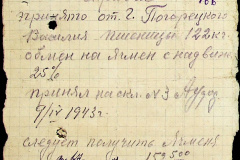 принято от г. Погорецкого
Василия пшеницы 122 кг.
обмен на Ячмен с надвыш.
25%
принял на ск. №3
9/IV 1943 г.
следует получить Ячменя